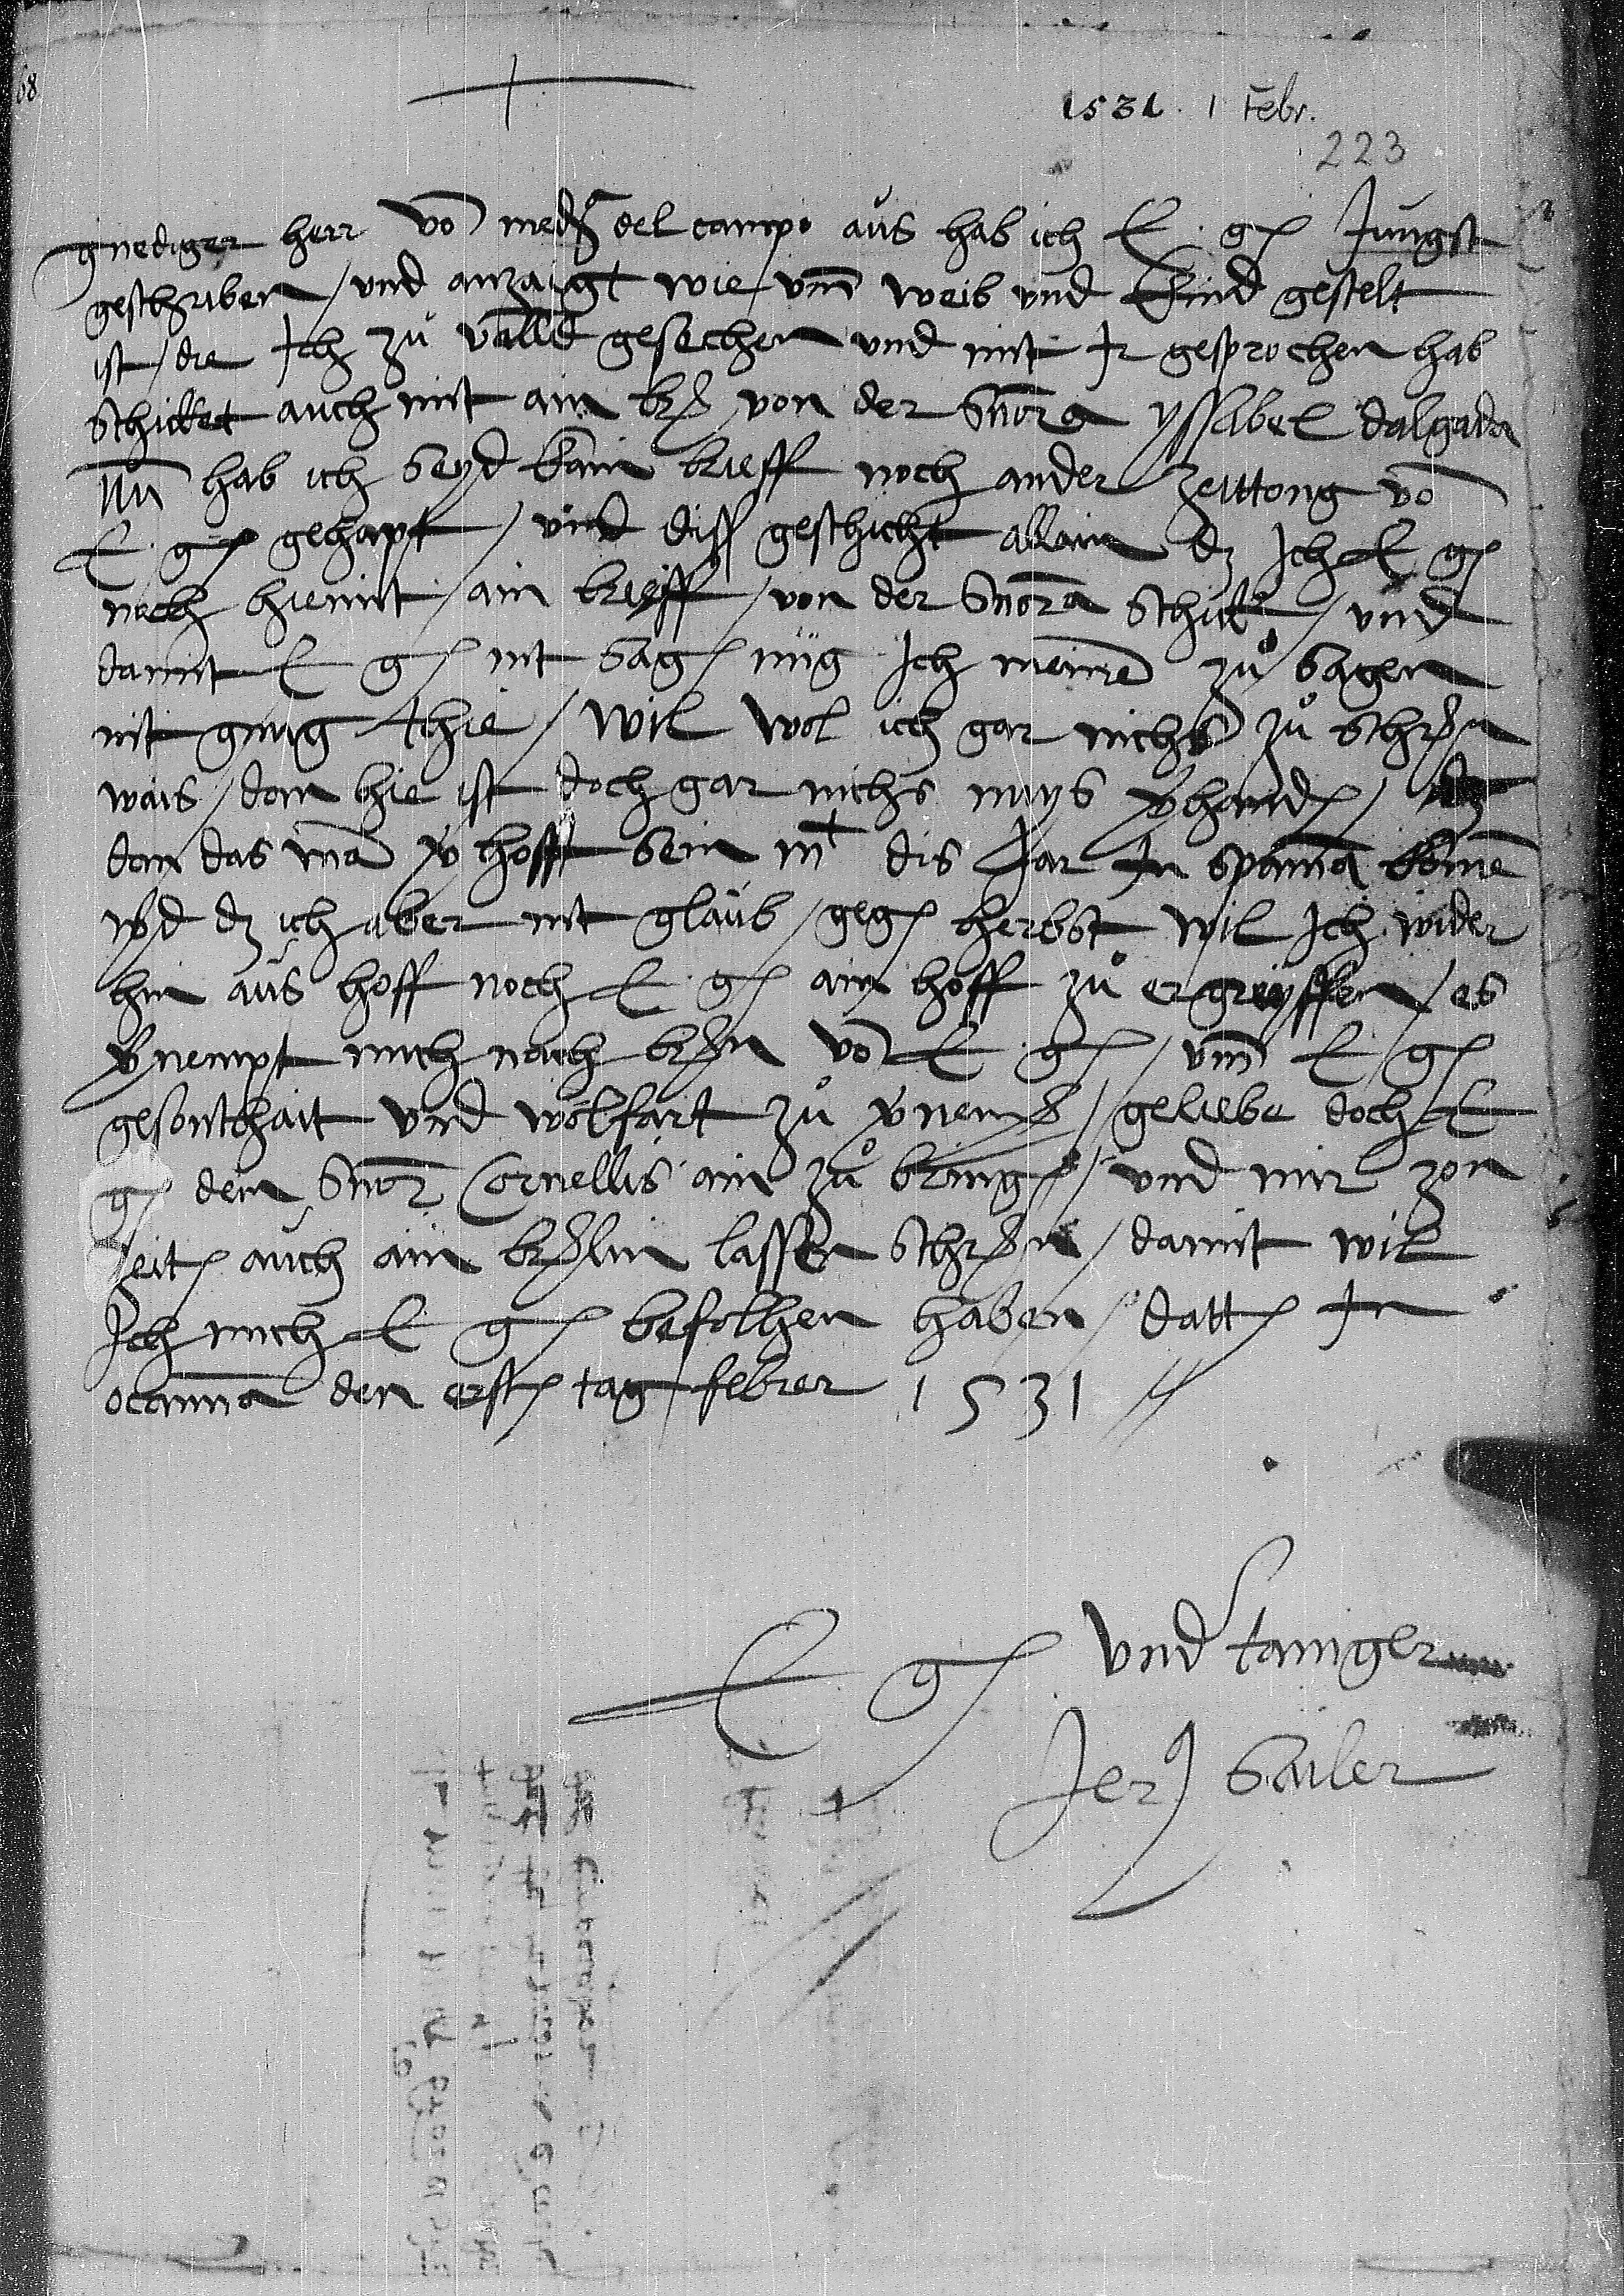 68
1531. 1 Febr.
223
gnediger herr vō medª del campo aus hab ich E. g. Jungst
geschriben / und anzaigt wie / vm̄ weib und Kind gestelt
ist / die Ich zů valld gesechen und mit Ir gesprochen hab
schicket auch mit ain brˢ von der Snōra yssabel dalgada
Nū hab ich seyd kain brieff noch ander zeittong vō
E. g. gehapt / und diss geschicht allain dz Ich E g.
noch hiemit / ain brieff / von der Snōra schick / und
damit E g. nit sag. mug Ich meinē zů sagen
nit gnug thie / wil wol ich gar nichs zů schrˢn
wais / dan hie ist doch gar nichs nuys vˢhandˢ /
dan das mā vˢhofft sein mᵗ dis Jar In spania komē
wˢd dz ich aber nit glaub / gegˢ herbst wil Ich wider
hin aus hoff noch E. g. am hoff zů ergreyffen / es
vˢnempt mich nach brˢn vō E. g. / vm̄ E / g.
gesonthait und wolfart zů vˢnemˢ / geliebe doch E
g. dem Snōr Cornellis ain zů bringˢ / und mir zon
Zeitˢ auch ain brˢflin lassen schrˢn / damit wil
Ich mich E g. befolhen haben / dattˢ In
ocanna den erstˢ tag febrer 1531 //
E g. undˢtaniger
Jerˢ Sailer